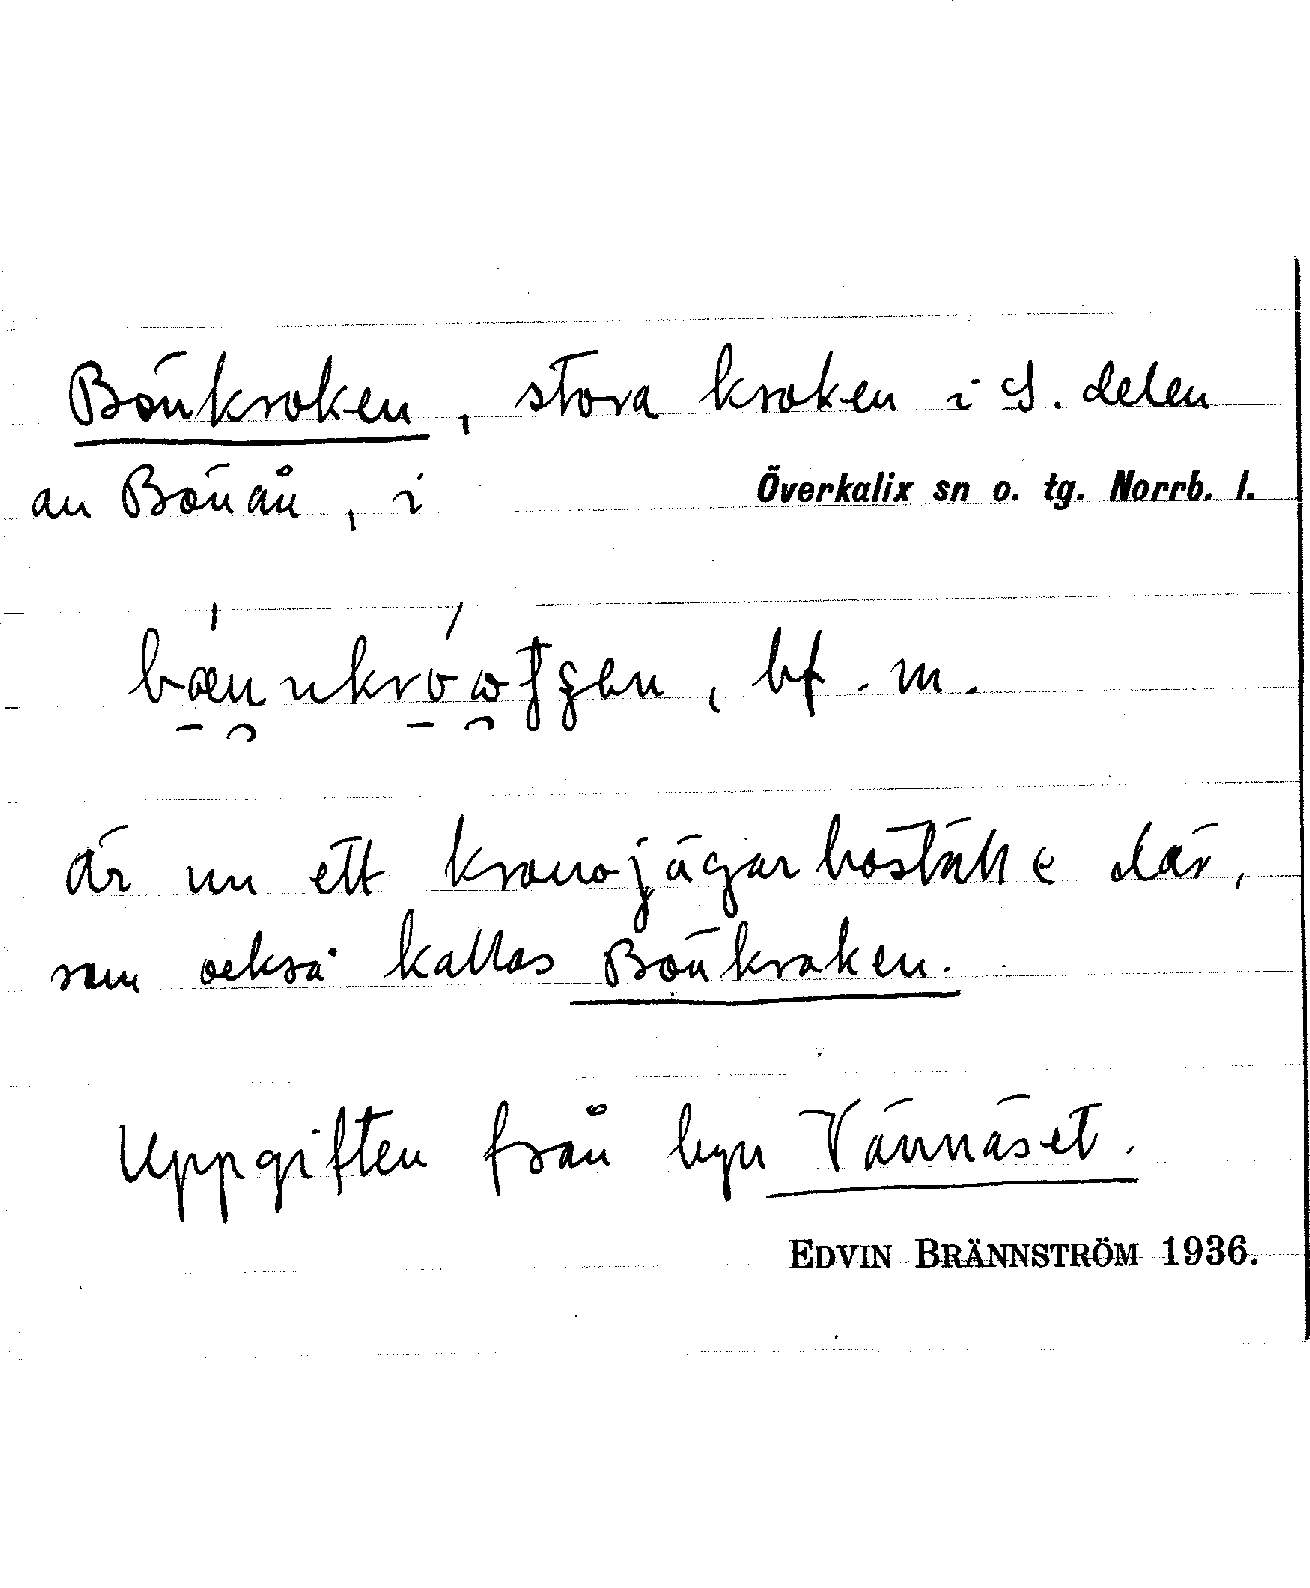 Bönkroken, stora kroken i S. delen
av Bönån, i Överkalix sn o. tg. Norrb. l.
bf. m.
Är nu ett kronojägarboställe där,
som också kallas Bönkroken.
Uppgiften från byn Vännäset.
EDVIN BRÄNNSTRÖM 1936.